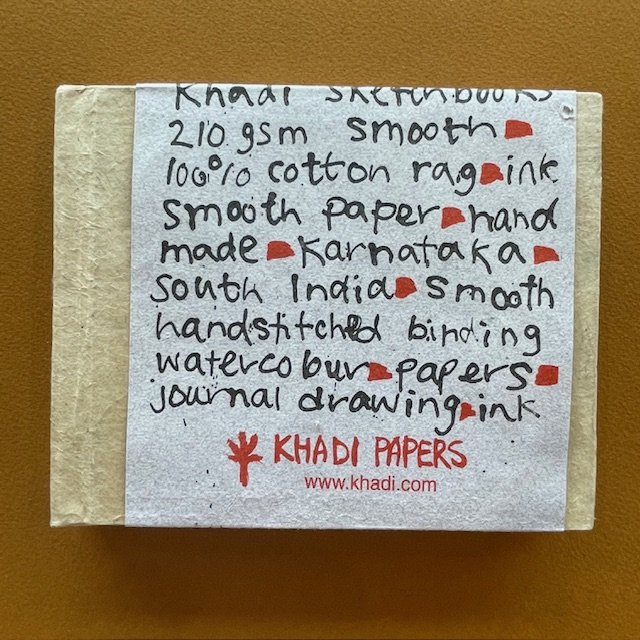 Khadi sketchbooks
210 gsm smooth
100% cotton rag ink
smooth paper hand
made Karnataka
south India smooth
handstitched binding
watercolour papers
journal drawing ink
KHADI PAPERS
www.khadi.com